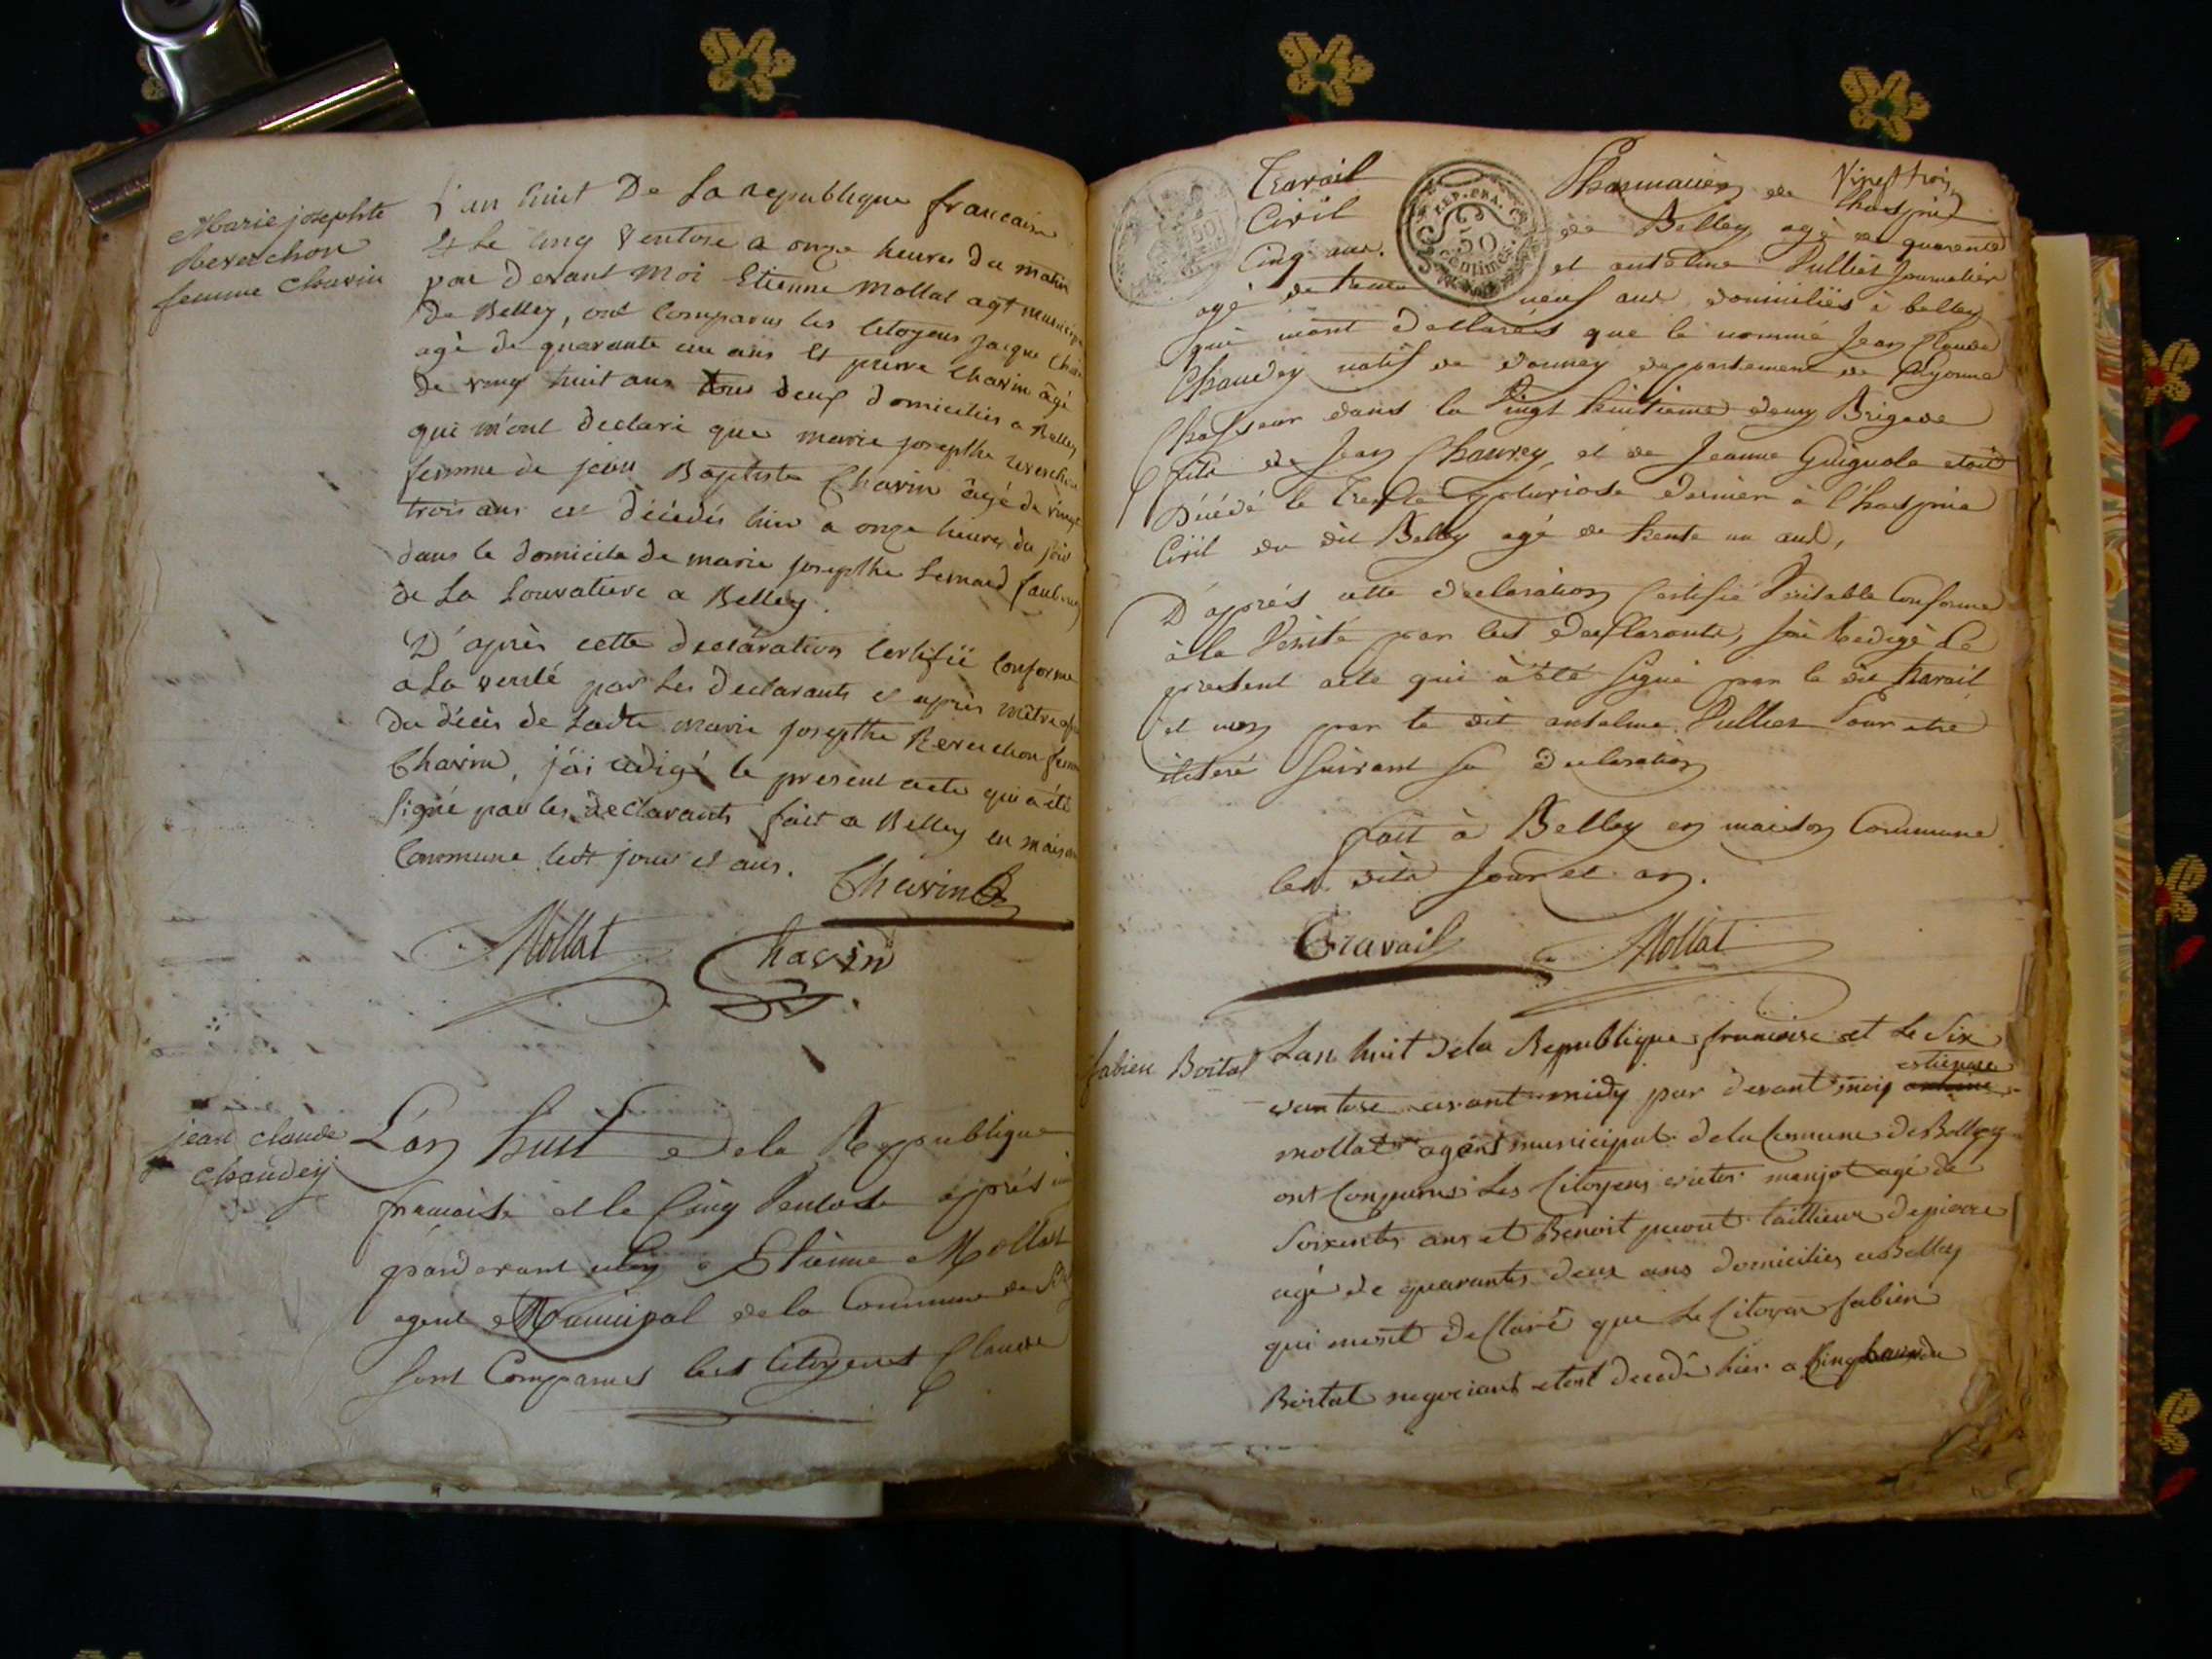 Marie josephte
Reverchon
femme Chavin
L'an huit De La republique francaise
Et Le cinq Ventose a onze heures du matin
par devant moi Etienne Mollat agt municip
de Belley, ont comparus les citoyens jacque Cha
agé de quarante un ans Et pierre Chavin âgé
de vingt huit ans tous deux domicilies a Belley
qui m'ont declaré que marie josepthe reverchon
femme de jean Baptiste Chavin âgé de vingt
trois ans est décédés hier a onze heures du soir
dans le domicile de marie josepthe Lemard faubourg
de La Louvatiere a Belley.
D'après cette declaration certifié conforme
a La verité par Les declarants et après m'être
du décès de Ladte marie josepthe Reverchon femme
Chavin, j'ai redigé le present acte qui a été
signé par les declarants fait a Belley en maison
Commune lesdt jours et ans.
Chavin
Mollat Chavin
jean claude
chaudey
L'an huit de la Republique
francaise et le Cinq Ventose apprés
pardevant moy Etienne Mollat
agent Municipal de la Commune de
sont Comparus les citoyens Claude
REP. FRA.
50
centimes
Vingt trois
Travail Pharmacien de l'hospice
Civil de Belley agé de quarente
Cinq ans. et anteline Pullier Journalier
agé de trente neuf ans domiciliés à belley
qui mont declarés que le nommé Jean Claude
Chaudey natif de donnay departement de
Chasseur dans la Vingt huitieme demy Brigade
fils de Jean Chaudey et de Jeanne Guignole etoit
Décédé le Trente pluviose dernier à l'hospice
Civil du dit Belley agé de trente un ans,
D'apprés cette declaration Certifié Veritable Conforme
à la Verité par les declarants, jai Redigé le
present acte qui à été signé par le dit travail
et non par le dit anselme Pullier Pour etre
illiteré suivant sa declaration
fait à Belley en maison Commune
les dits jour et an.
Travail Mollat
fabien Boitat
Lan huit dela Republique francoise et Le Six
vantose avant midy par devant moy estienne
mollat agent municipal dela Comune de Belley
ont Comparus Les Citoyens victor manjot agé de
Soixente ans et Benoit tailleur de pierre
agé de quarante deux ans domicilies a Belley
qui mont declaré que Le Citoyen fabien
Boitat negociant etoit decedé hier a Cinq heures du